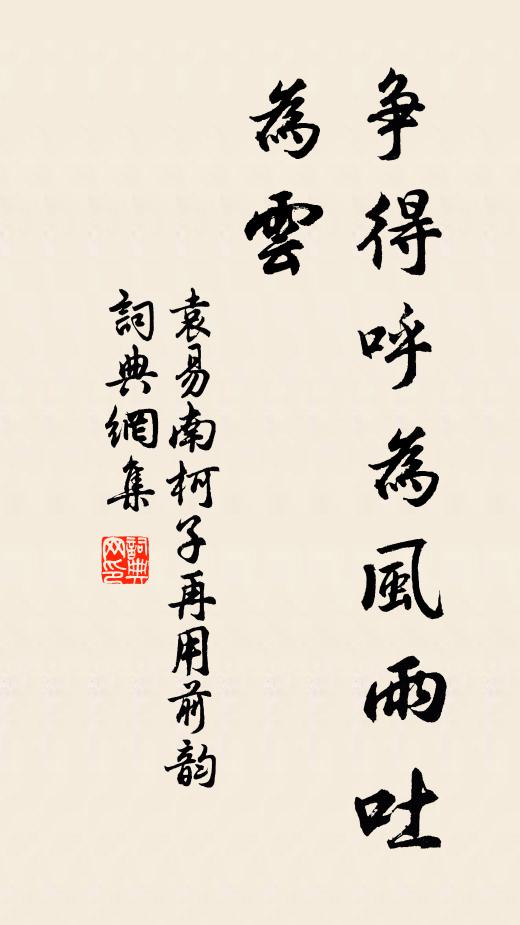 争得呼為風雨吐
為雲
袁易南柯子再用前韵
詞典網集
詞典
网印